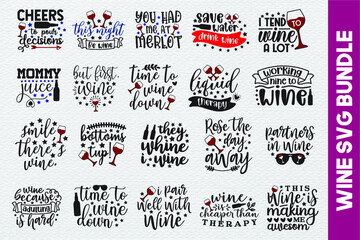 CHEERS
to pour
decisions
this might
be wine
YOU HAD
ME AT
MERLOT
save
water
drink wine
I TEND
TO
wine
A LOT
MOMMY
juice
but first
wine
time to
wine
down
liquid
therapy
WORKING
NINE TO
wine!
smile
there's
wine.
bottoms
up!
they
whine i
wine
Rose
THE
day
away
partners in
Wine
wine
because
adulting
is hard
TIME TO
wine
down
i pair
well with
Wine
wine
is
cheaper than
THERAPY
THIS
Wine IS
making
ME
awesome
WINE SVG BUNDLE